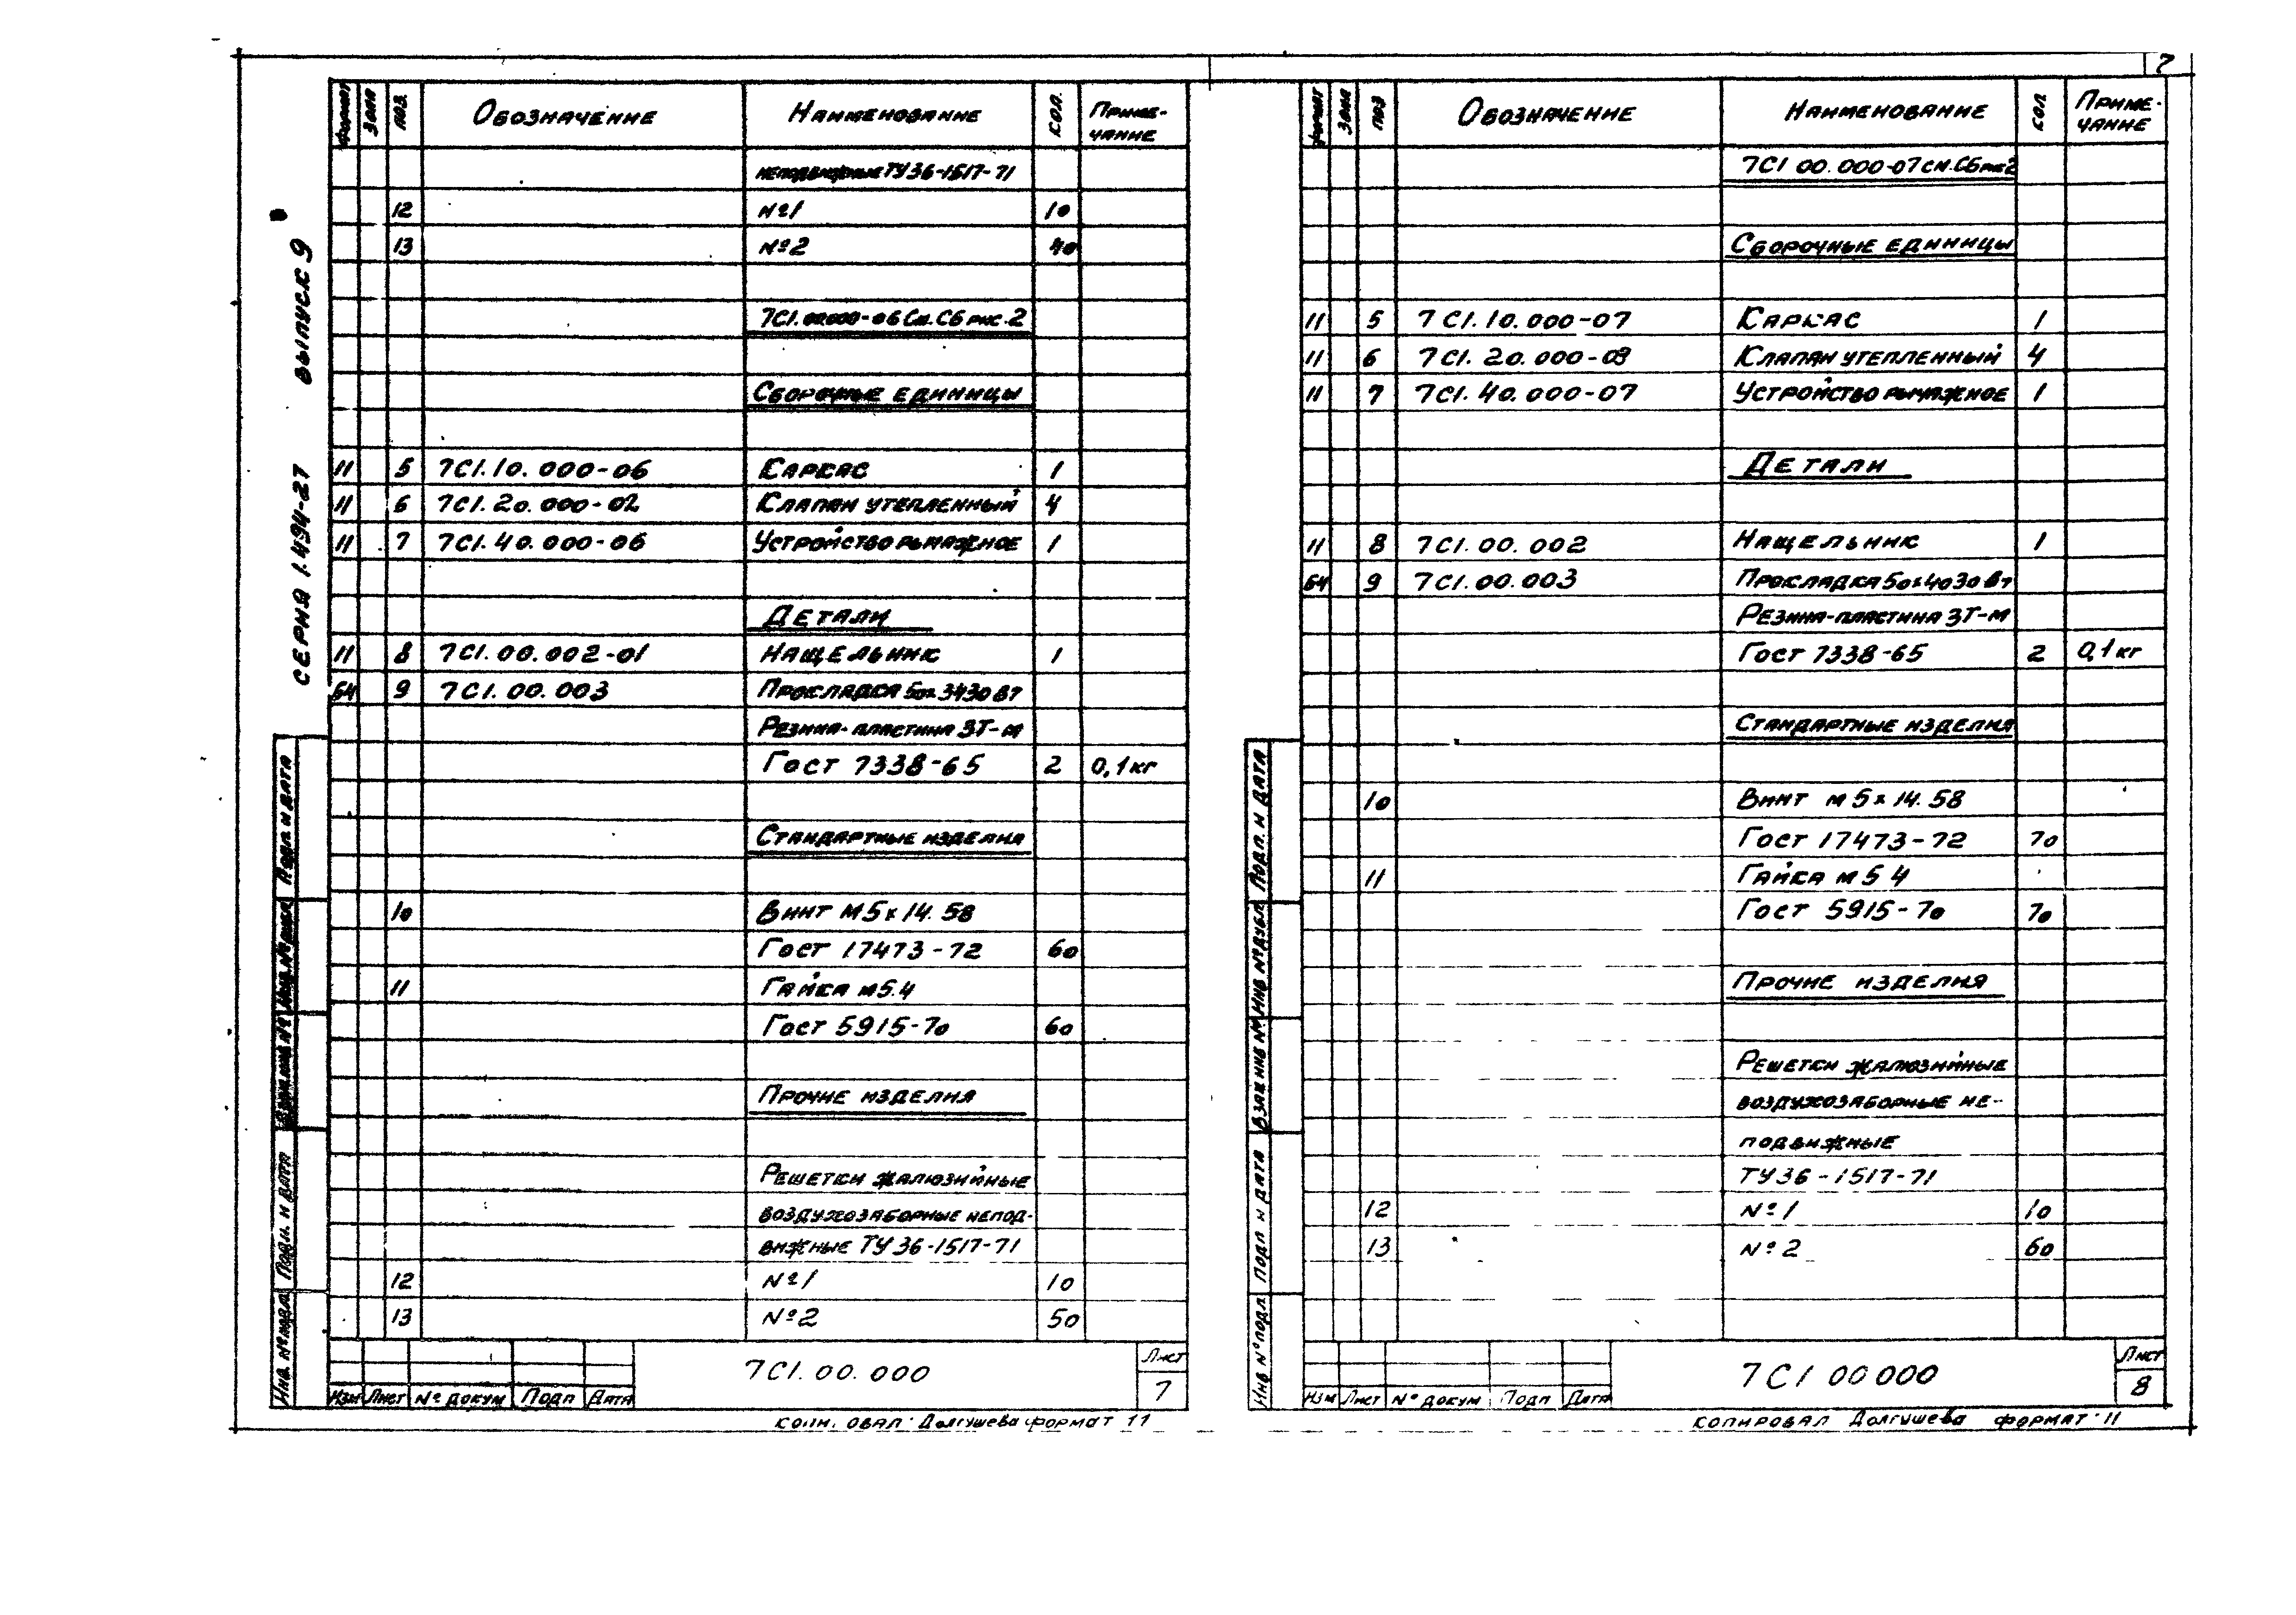 7
СЕРИЯ 1.494-27 ВЫПУСК 9
Формат Зона Поз. Обозначение Наименование Кол. Приме-
чание
неподвижные ТУ36-1517-71
12 №1 10
13 №2 40
7С1.00.000-06 См. СБ рис.2
Сборочные единицы
11 5 7С1.10.000-06 Каркас 1
11 6 7С1.20.000-02 Клапан утепленный 4
11 7 7С1.40.000-06 Устройство рычажное 1
Детали
11 8 7С1.00.002-01 Нащельник 1
БЧ 9 7С1.00.003 Прокладка 50х3430 Вт
Резина-пластина 3Т-М
Гост 7338-65 2 0,1кг
Стандартные изделия
10 Винт М5х14.58
Гост 17473-72 60
11 Гайка М5.4
Гост 5915-70 60
Прочие изделия
Решетки жалюзийные
воздухозаборные непод-
вижные ТУ36-1517-71
12 №1 10
13 №2 50
Инв. № подл. Подп. и дата Взам. инв. № Инв. № дубл. Подп. и дата
Изм Лист № докум Подп Дата
7С1.00.000
Лист
7
Долгушева формат 11
Формат Зона Поз Обозначение Наименование Кол Приме-
чание
7С1 00.000-07 см. СБ рис 2
Сборочные единицы
11 5 7С1.10.000-07 Каркас 1
11 6 7С1.20.000-03 Клапан утепленный 4
11 7 7С1.40.000-07 Устройство рычажное 1
Детали
11 8 7С1.00.002 Нащельник 1
БЧ 9 7С1.00.003 Прокладка 50х4030 Вт
Резина-пластина 3Т-М
Гост 7338-65 2 0,1кг
Стандартные изделия
10 Винт М5х14.58
Гост 17473-72 70
11 Гайка М5 4
Гост 5915-70 70
Прочие изделия
Решетки жалюзийные
воздухозаборные не-
подвижные
ТУ36-1517-71
12 №1 10
13 №2 60
Инв № подл Подп и дата Взам инв № Инв № дубл Подп. и дата
Изм Лист № докум Подп Дата
7С1 00 000
Лист
8
Копировал Долгушева формат 11